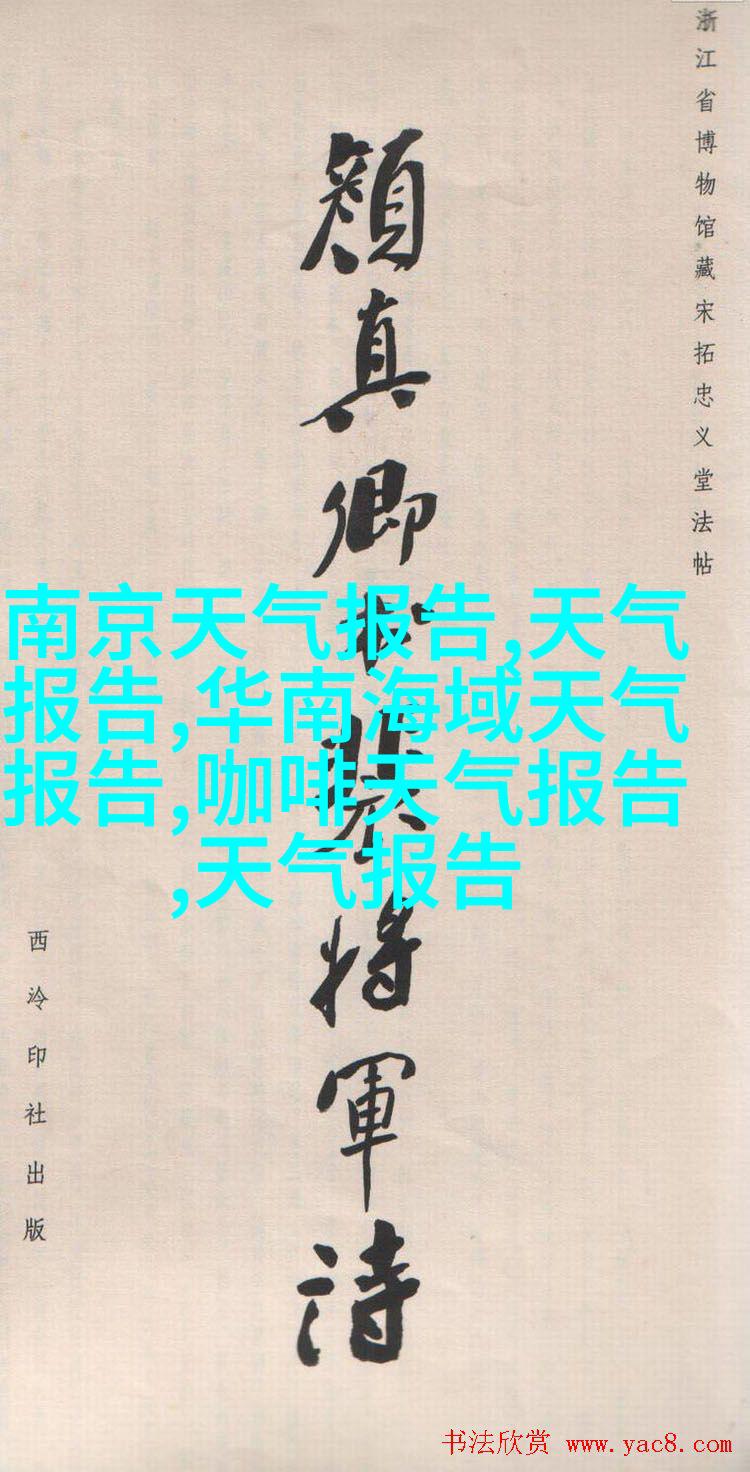 浙江省博物馆藏宋拓忠义堂法帖
顔真卿书裴将軍詩
西泠印社出版
南京天气报告,天气
报告,华南海域天气
报告,咖啡天气报告
,天气报告
书法欣赏 www.yac8.com